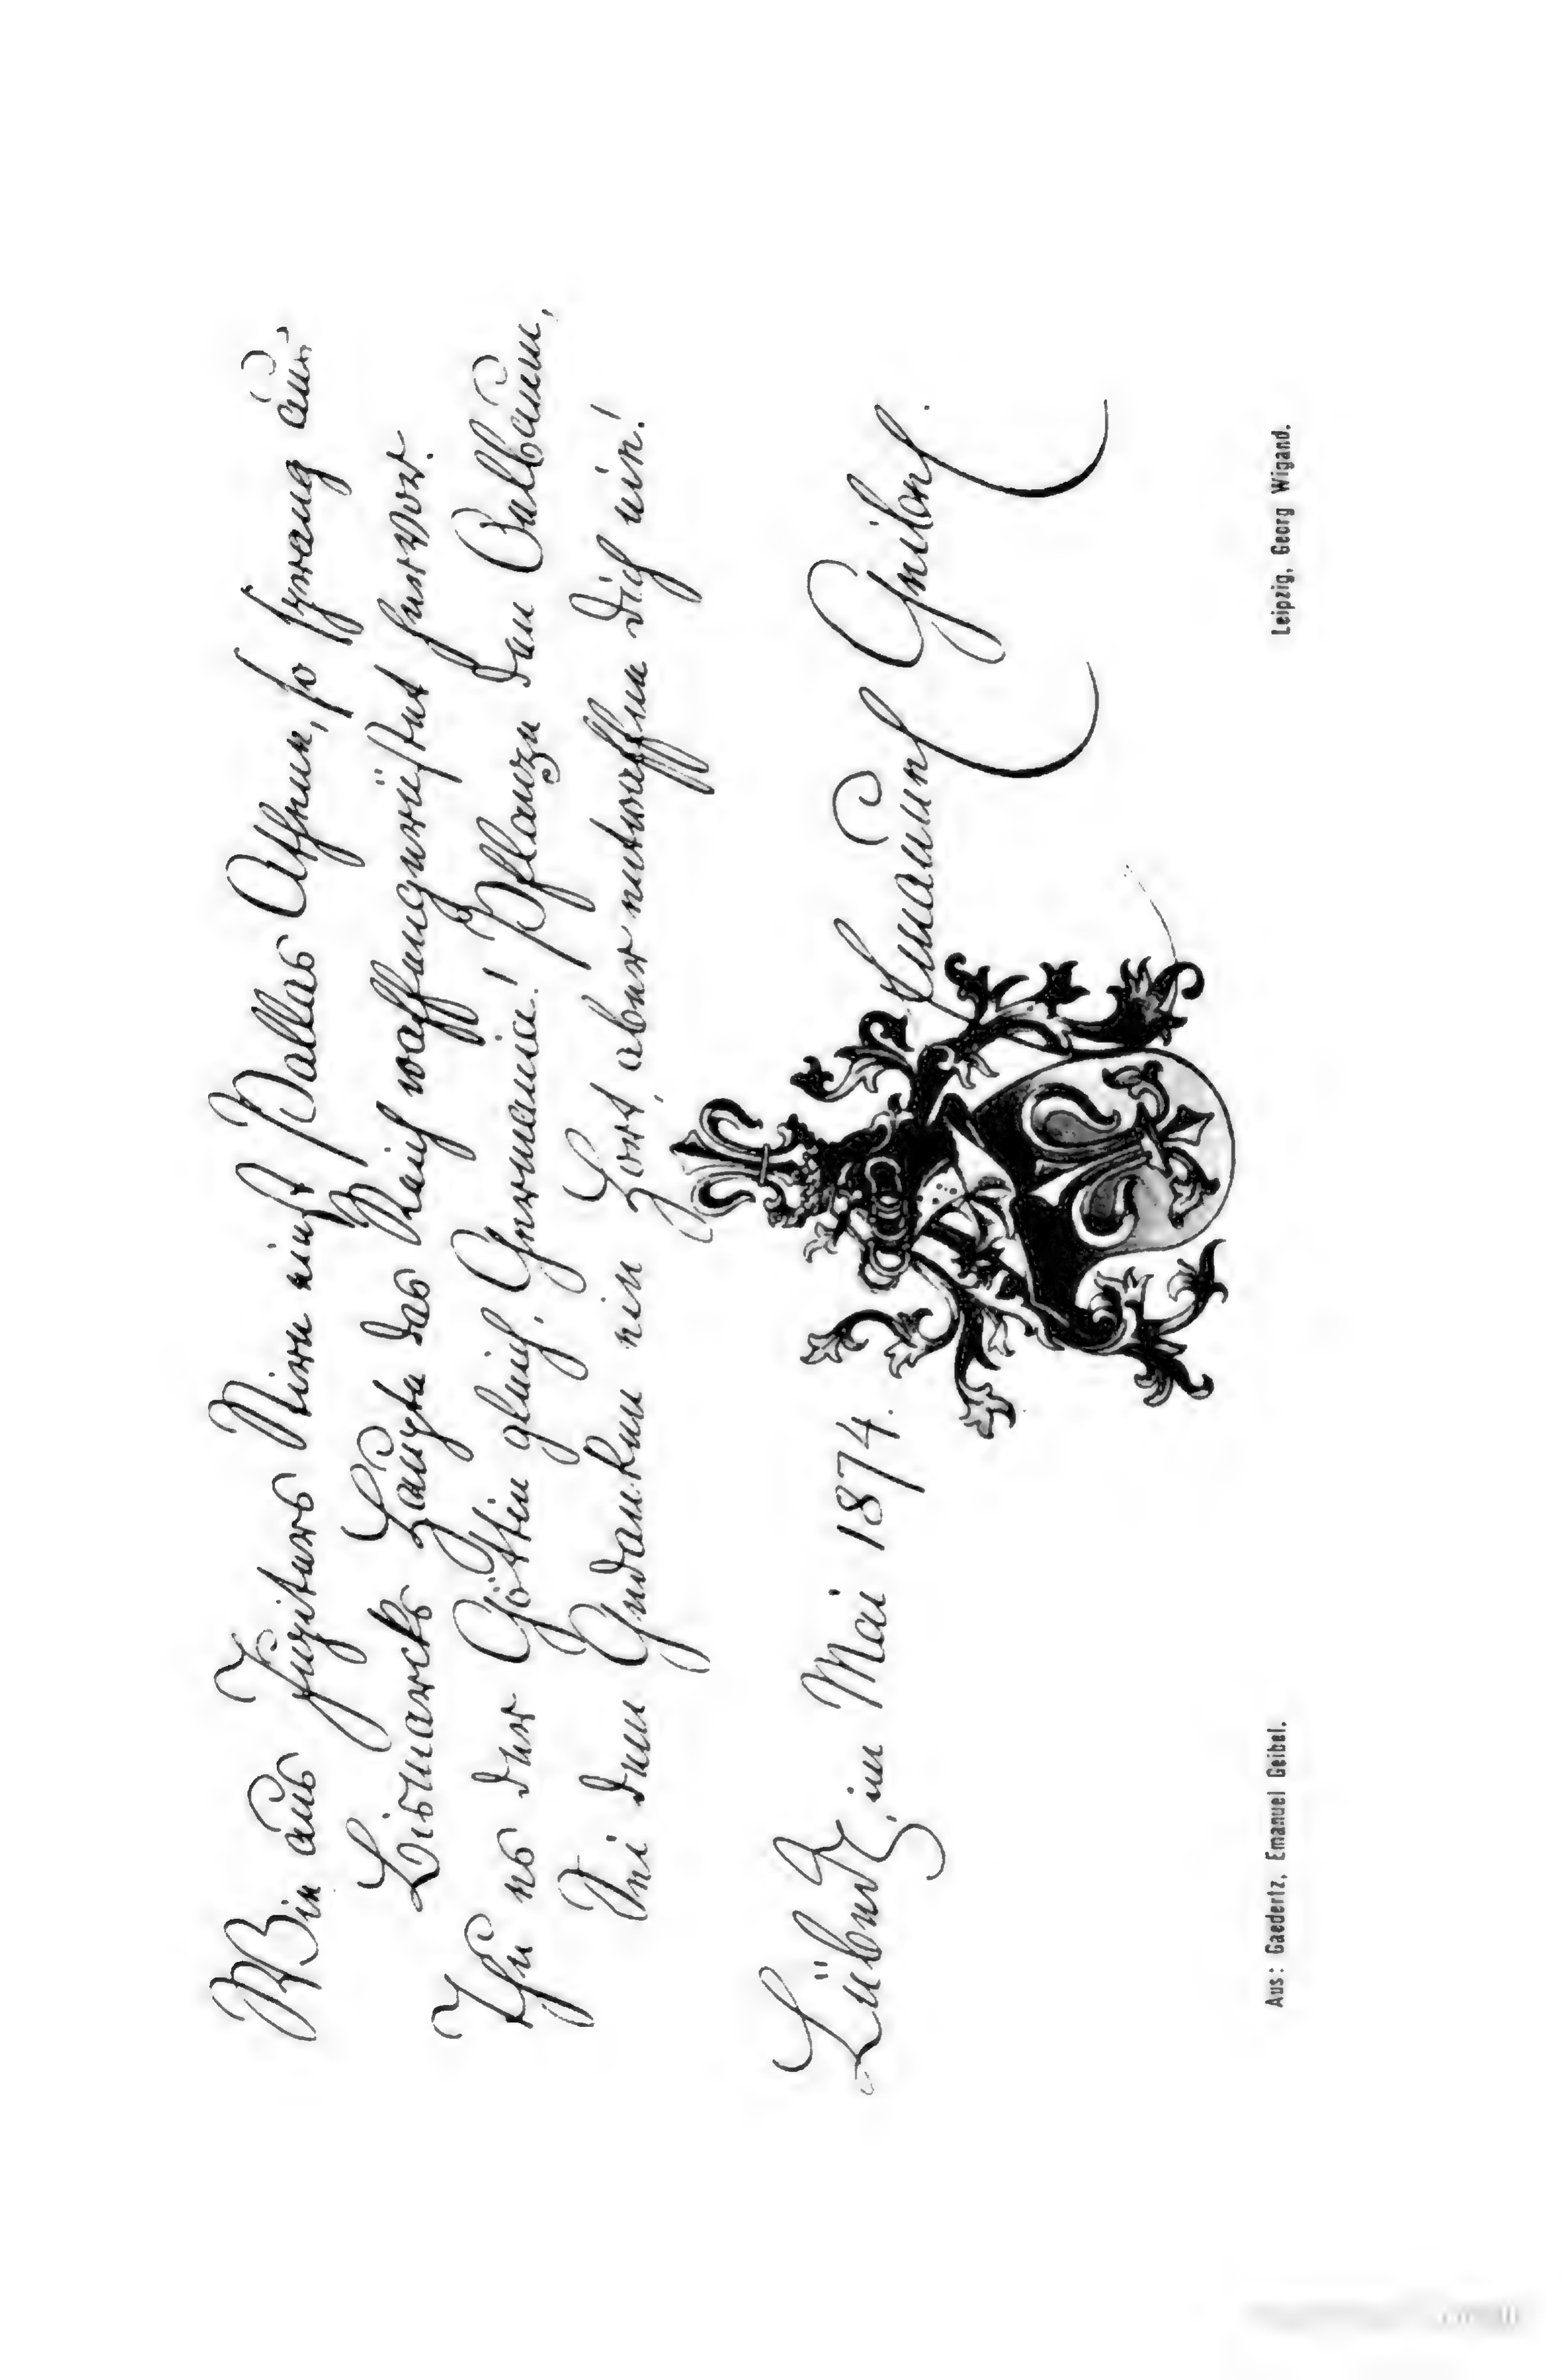 Wie aus Jupiters Stirn einst Pallas Athene, so sprang aus
Bismarcks Haupte das Reich waffengerüstet hervor.
Thu es der Göttin gleich, Germania! Pflanze den Oelbaum,
Sei dem Gedanken ein Hort, aber entwaffne dich nie!
Lübeck, im Mai 1874.
Emanuel Geibel.
Aus: Gaedertz, Emanuel Geibel.
Leipzig, Georg Wigand.